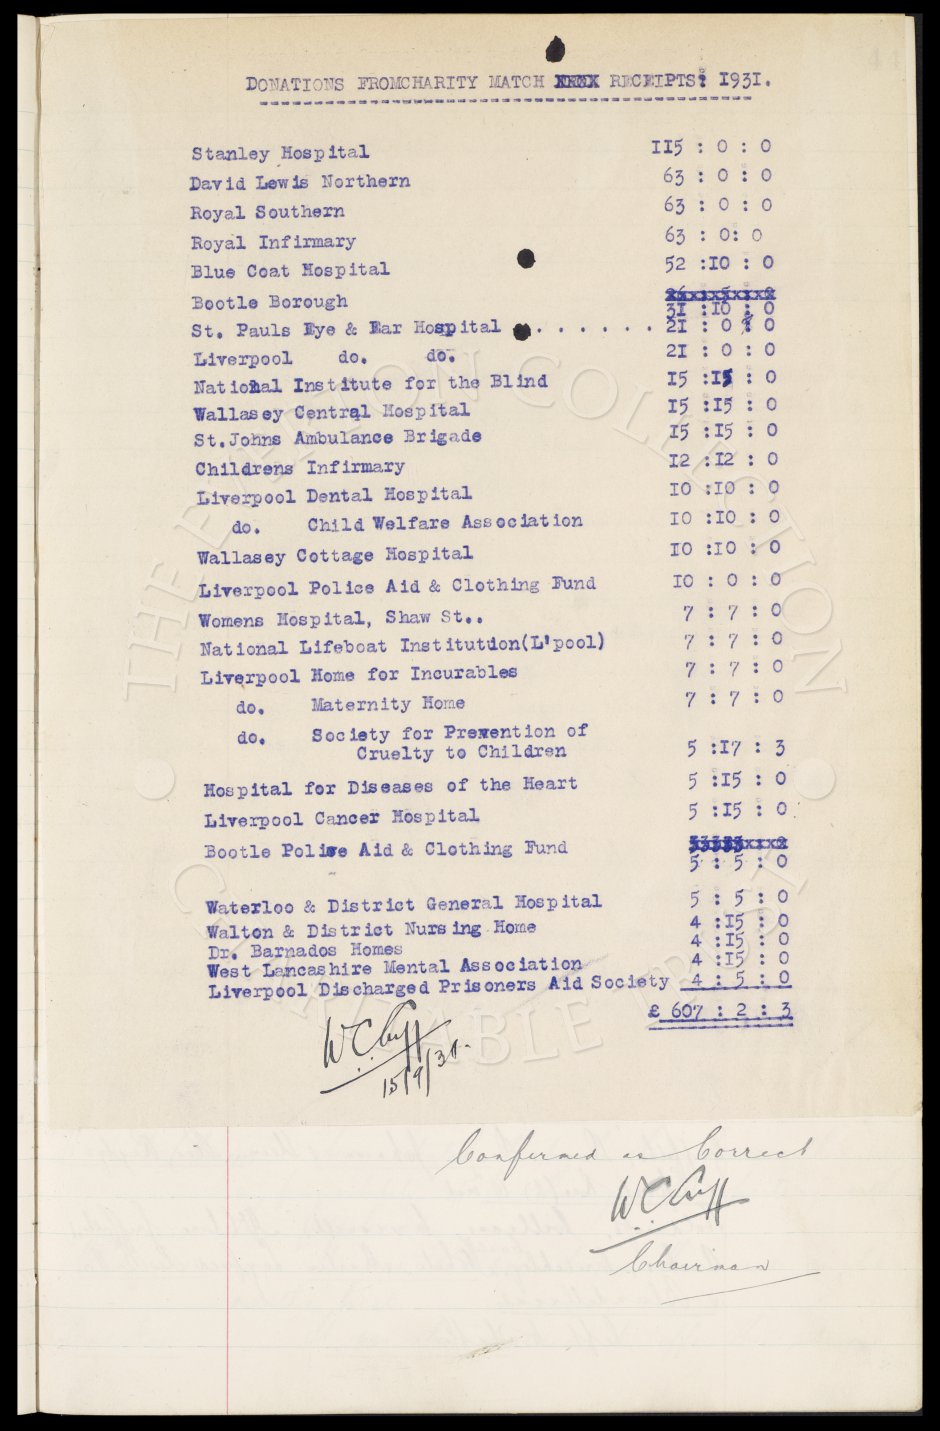 DONATIONS FROMCHARITY MATCH RECEIPTS: 1931.
Stanley Hospital 115 : 0 : 0
David Lewis Northern 63 : 0 : 0
Royal Southern 63 : 0 : 0
Royal Infirmary 63 : 0: 0
Blue Coat Hospital 52 :10 : 0
Bootle Borough 31 :10 : 0
St. Pauls Eye & Ear Hospital . . . . . . . 21 : 0 : 0
Liverpool do. do. 21 : 0 : 0
National Institute for the Blind 15 :15 : 0
Wallasey Central Hospital 15 :15 : 0
St.Johns Ambulance Brigade 15 :15 : 0
Childrens Infirmary 12 :12 : 0
Liverpool Dental Hospital 10 :10 : 0
do. Child Welfare Association 10 :10 : 0
Wallasey Cottage Hospital 10 :10 : 0
Liverpool Police Aid & Clothing Fund 10 : 0 : 0
Womens Hospital, Shaw St.. 7 : 7 : 0
National Lifeboat Institution(L'pool) 7 : 7 : 0
Liverpool Home for Incurables 7 : 7 : 0
do. Maternity Home 7 : 7 : 0
do. Society for Prevention of
Cruelty to Children 5 :17 : 3
Hospital for Diseases of the Heart 5 :15 : 0
Liverpool Cancer Hospital 5 :15 : 0
Bootle Police Aid & Clothing Fund 5 : 5 : 0
Waterloo & District General Hospital 5 : 5 : 0
Walton & District Nursing Home 4 :15 : 0
Dr. Barnados Homes 4 :15 : 0
West Lancashire Mental Association 4 :15 : 0
Liverpool Discharged Prisoners Aid Society 4 : 5 : 0
£ 607 : 2 : 3
W.C. Cuff
15/9/31.
Confirmed as Correct
W.C. Cuff
Chairman
THE EVERTON COLLECTION
CHARITABLE TRUST